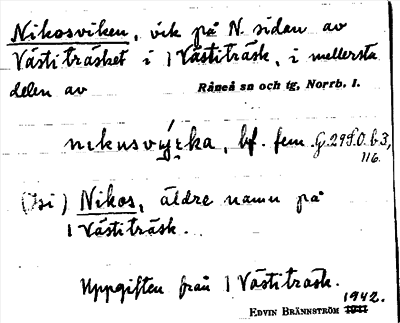 Nikosviken, vik på N. sidan av
Västiträsket i 1 Västiträsk, i mellersta
delen av Råneå sn och tg, Norrb. l.
nikusvýka, bf. fem. G. 29 f. O. b. 3,
116.
) Nikos, äldre namn på
1 Västiträsk.
Uppgiften från 1 Västiträsk.
1942.
EDVIN BRÄNNSTRÖM 1941